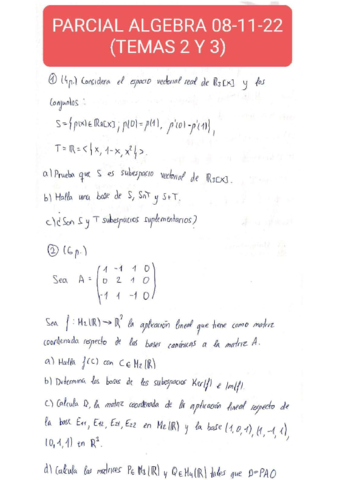 PARCIAL ALGEBRA 08-11-22
(TEMAS 2 Y 3)
① (4p.) Considera el espacio vectorial real de R₂[X] y los
conjuntos:
S = { p(x) ∈ R₂[X]; p(0) = p(1), p'(0) = p'(1) },
T = R = < { x, 1-x, x² } >.
a) Prueba que S es subespacio vectorial de R₂[X].
b) Halla una base de S, S∩T y S+T.
c) ¿Son S y T subespacios suplementarios?
② (6p.)
Sea A = ( 1 -1 1 0
0 2 1 0
-1 1 -1 0 )
Sea f: M₂(R) → R³ la aplicación lineal que tiene como matriz
coordenada respecto de las bases canónicas a la matriz A.
a) Halla f(C) con C ∈ M₂(R)
b) Determina las bases de los subespacios Ker(f) e Im(f).
c) Calcula D, la matriz coordenada de la aplicación lineal respecto de
la base E₁₁, E₁₂, E₂₁, E₂₂ en M₂(R) y la base (1,0,1), (1,-1,1),
(0,1,1) en R³.
d) Calcula las matrices P ∈ M₃(R) y Q ∈ M₄(R) tales que D=PAQ